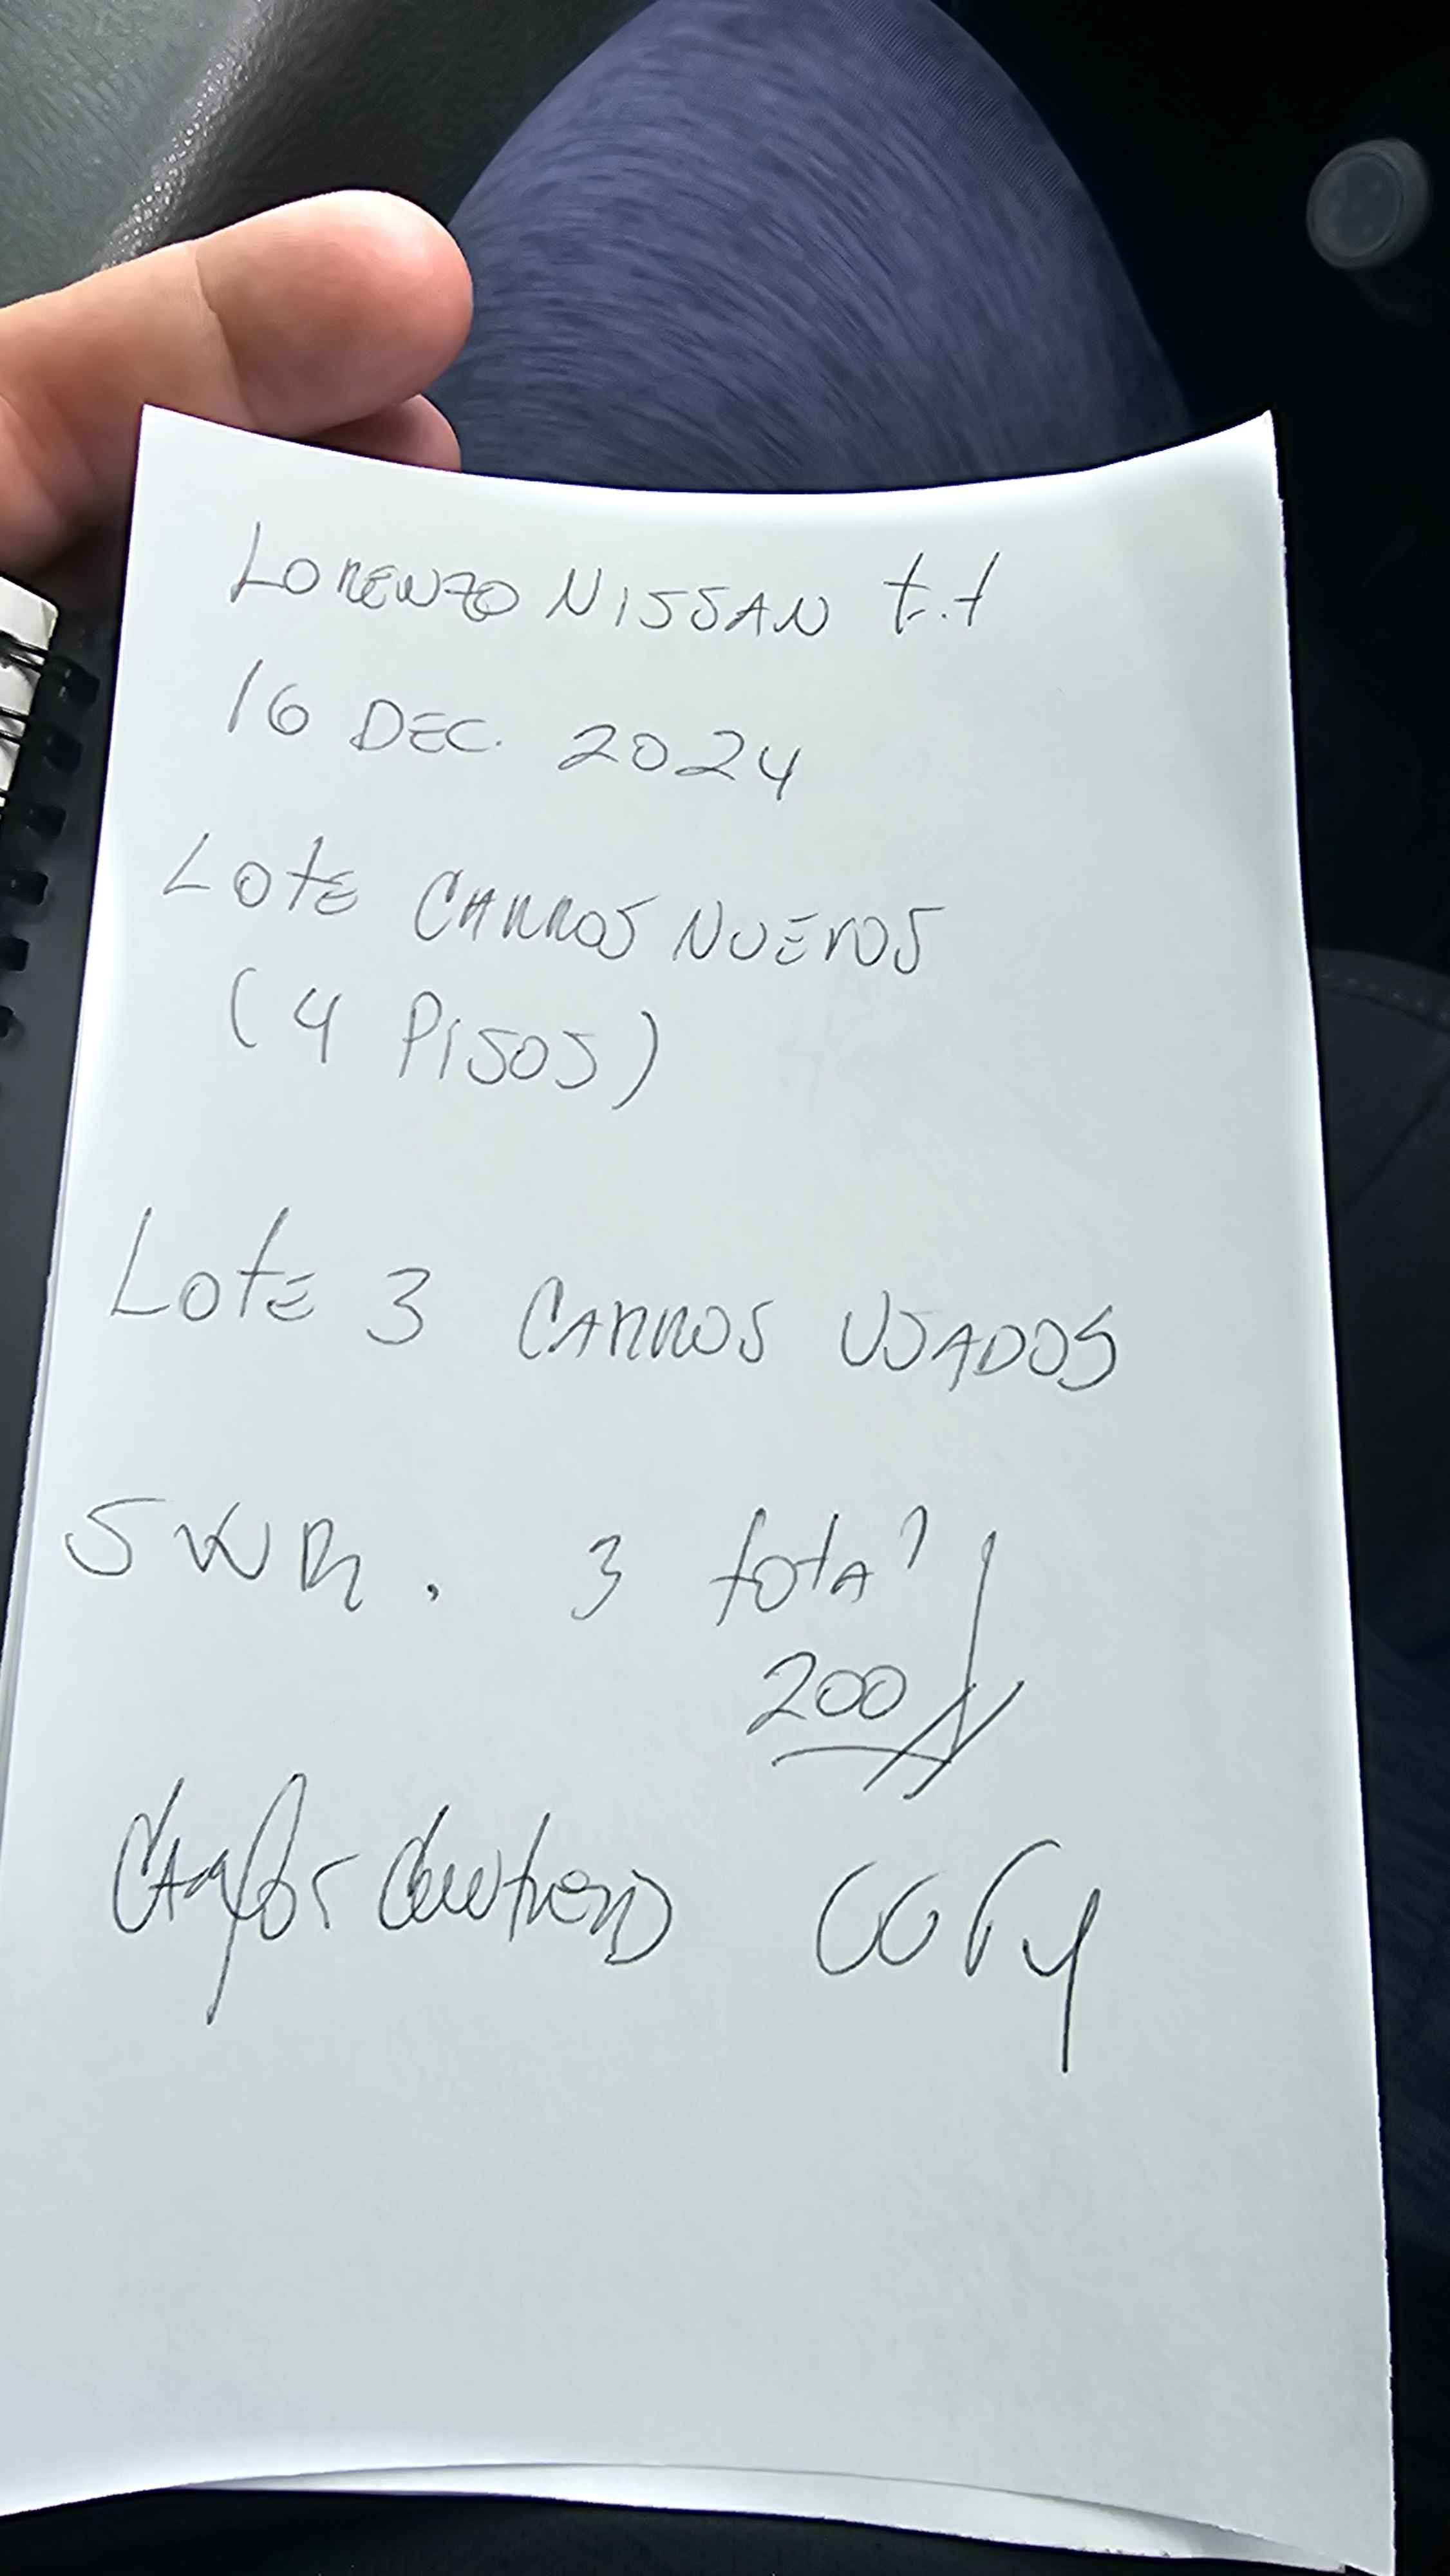 LORENZO NISSAN t.t
16 DEC. 2024
LOTE CARROS NUEVOS
(4 PISOS)
LOTE 3 CARROS USADOS
SWR. 3 total
200
COPY